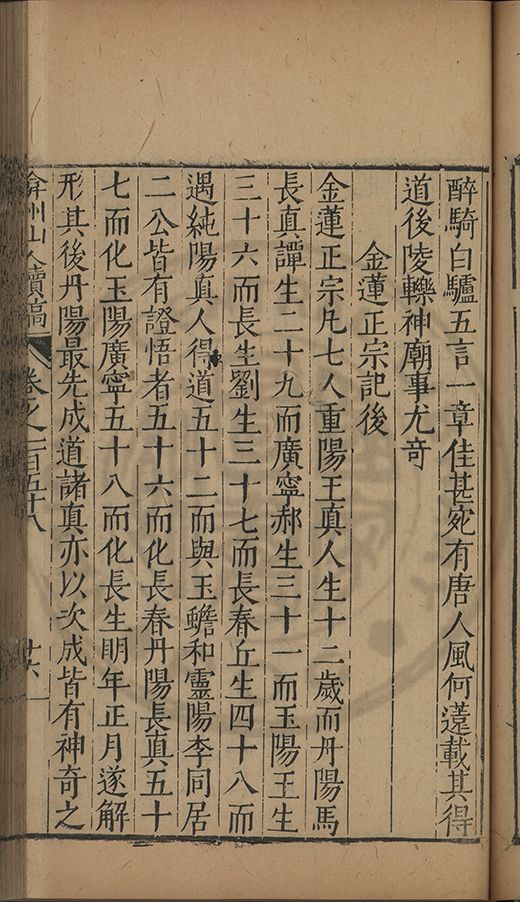 醉騎白驢五言一章佳甚宛有唐人風何薳載其得
道後陵轢神廟事尤奇
金蓮正宗記後
金蓮正宗凡七人重陽王真人生十二歲而丹陽馬
長真譚生二十九而廣寧郝生三十一而玉陽王生
三十六而長生劉生三十七而長春丘生四十八而
遇純陽真人得道五十二而與玉蟾和靈陽李同居
二公皆有證悟者五十六而化長春丹陽長真五十
七而化玉陽廣寧五十八而化長生明年正月遂解
形其後丹陽最先成道諸真亦以次成皆有神奇之
弇州山人續稿 卷之一百五十八 廿六